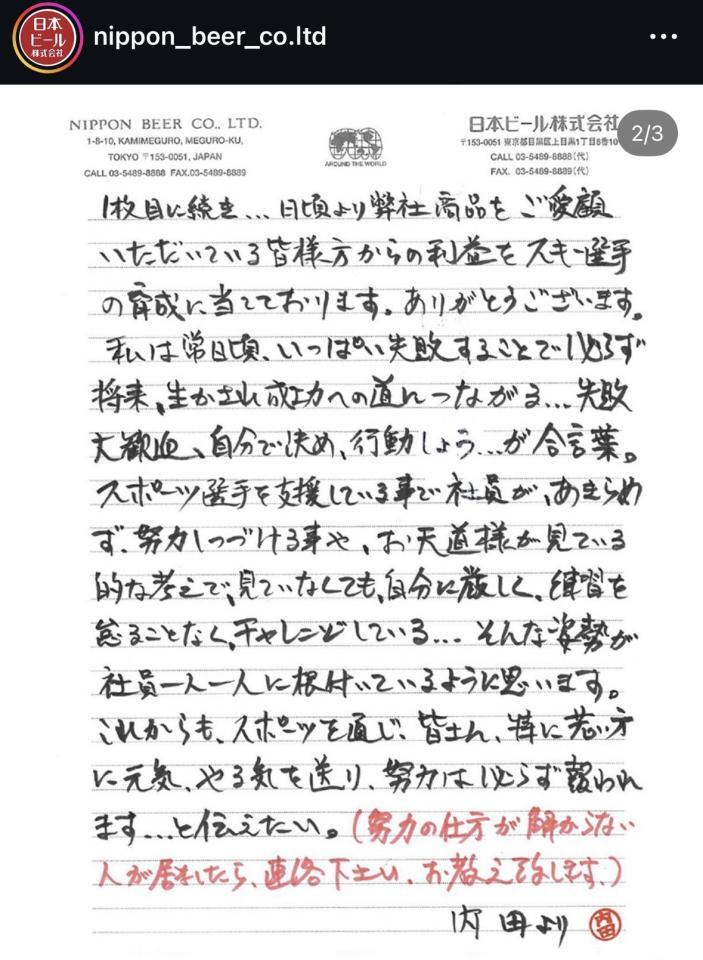 日本
ビール
株式会社
nippon_beer_co.ltd
2/3
NIPPON BEER CO., LTD.
1-8-10, KAMIMEGURO, MEGURO-KU,
TOKYO 〒153-0051, JAPAN
CALL 03-5489-8888 FAX.03-5489-8889
AROUND THE WORLD
日本ビール株式会社
〒153-0051 東京都目黒区上目黒1丁目8番10
CALL 03-5489-8888(代)
FAX. 03-5489-8889(代)
1枚目に続き...日頃より弊社商品をご愛顧
いただいている皆様方からの利益をスキー選手
の育成に当てております。ありがとうございます。
私は常日頃、いっぱい失敗することで必らず
将来、生かされ成功への道につながる...失敗
大歓迎、自分で決め、行動しよう...が合言葉。
スポーツ選手を支援している事で社員が、あきらめ
ず、努力しつづける事や、お天道様が見ている
的な考えで、見ていなくても、自分に厳しく、練習を
怠ることなく、チャレンジしている...そんな姿勢が
社員一人一人に根付いているように思います。
これからも、スポーツを通じ、皆さん、特に若い方
に元気、やる気を送り、努力は必らず報われ
ます...と伝えたい。(努力の仕方が解からない
人が居ましたら、連絡下さい、お教え致します。)
内田より
内田